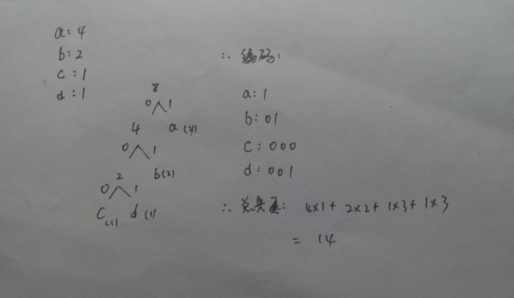 a:4
b:2
c:1
d:1
8
0 1
4 a(4)
0 1
2 b(2)
0 1
C(1) d(1)
∴ 编码:
a:1
b:01
c:000
d:001
∴ 总长度: 4×1+ 2×2+ 1×3+ 1×3
= 14